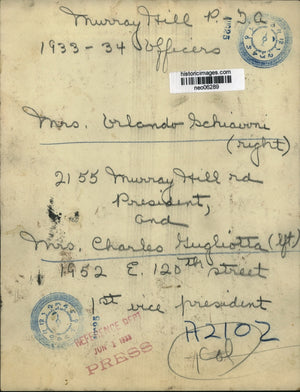 Murray Hill P. T. A
1933-34 Officers
historicimages.com
neo06289
Mrs. Orlando Schiavoni
(right)
2155 Murray Hill rd
President,
and
Mrs. Charles Gugliotta (left)
1952 E. 120th street
1st vice president
REFERENCE DEPT
JUN 1933
PRESS
A2102